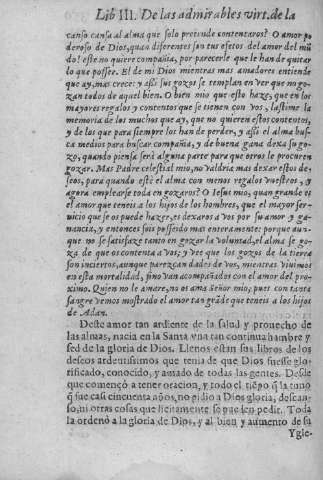 Lib III. De las admirables virt. de la
canso cansa al alma que solo pretende contentaros? O amor po
deroso de Dios, quan diferentes son tus efetos del amor del mũ
do! este no quiere compañia, por parecerle que le han de quitar
lo que possee. El de mi Dios mientras mas amadores entiende
que ay, mas crece: y assi sus gozos se templan en ver que no go-
zan todos de aquel bien. O bien mio que esto haze, que en los
mayores regalos y contentos que se tienen con vos, lastime la
memoria de los muchos que ay, que no quieren estos contentos,
y de los que para siempre los han de perder, y assi el alma bus-
ca medios para buscar compañia, y de buena gana dexa su go-
zo, quando piensa será alguna parte para que otros le procuren
gozar. Mas Padre celestial mio, no valdria mas dexar estos de-
seos, para quando esté el alma con menos regalos vuestros, y
agora emplearse toda en gozaros? O Iesus mio, quan grande es
el amor que teneis a los hijos de los hombres, que el mayor ser-
uicio que se os puede hazer, es dexaros a vos por su amor y ga-
nancia, y entonces sois posseido mas enteramente: porque aun-
que no se satisfaze tanto en gozar la voluntad, el alma se go-
za de que os contenta a vos; y vee que los gozos de la tierra
son inciertos, aunque parezcan dados de vos, mientras viuimos
en esta mortalidad, sino van acompañados con el amor del pro-
ximo. Quien no le amare, no os ama Señor mio; pues con tanta
sangre vemos mostrado el amor tan grãde que teneis a los hijos
de Adan.
Deste amor tan ardiente de la salud y prouecho de
las almas, nacia en la Santa vna tan continua hambre y
sed de la gloria de Dios. Llenos estan sus libros de los
deseos ardentissimos que tenia de que Dios fuesse glo-
rificado, conocido, y amado de todas las gentes. Desde
que començò a tener oracion, y todo el tiẽpo q̃ la tuuo
q̃ fue casi cincuenta años, no pidio a Dios gloria, descan-
so, ni otras cosas que licitamente se pueden pedir. Toda
la ordenò a la gloria de Dios, y al bien y aumento de su
Ygle-